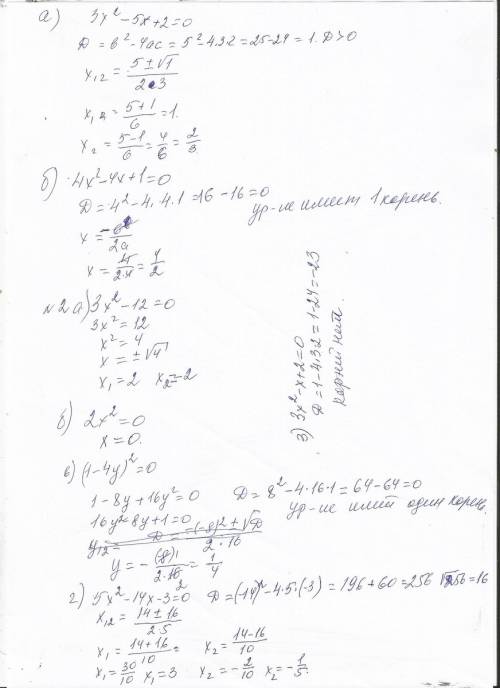 а) 3x² - 5x + 2 = 0
D = b² - 4ac = 5² - 4·3·2 = 25 - 24 = 1. D > 0
x₁,₂ = (5 ± √1) / (2·3)
x₁,₂ = (5+1)/6 = 1.
x₂ = (5-1)/6 = 4/6 = 2/3
б) 4x² - 4x + 1 = 0
D = 4² - 4·4·1 = 16 - 16 = 0 ур-ие имеет 1 корень.
x = -b/2a
x = 4/(2·4) = 1/2
№2 а) 3x² - 12 = 0
3x² = 12
x² = 4
x = ±√4
x₁ = 2 x₂ = -2
б) 2x² = 0
x = 0.
3) 3x² - x + 2 = 0
D = 1 - 4·3·2 = 1 - 24 = -23
корней нет.
в) (1 - 4y)² = 0
1 - 8y + 16y² = 0 D = 8² - 4·16·1 = 64 - 64 = 0
16y² - 8y + 1 = 0 ур-ие имеет один корень.
y = -(-8)/(2·16) = 1/4
г) 5x² - 14x - 3 = 0 D = (-14)² - 4·5·(-3) = 196 + 60 = 256 √256 = 16
x₁,₂ = (14 ± 16)/(2·5)
x₁ = (14+16)/10 = x₂ = (14-16)/10
x₁ = 30/10 x₁ = 3 x₂ = -2/10 x₂ = -1/5.